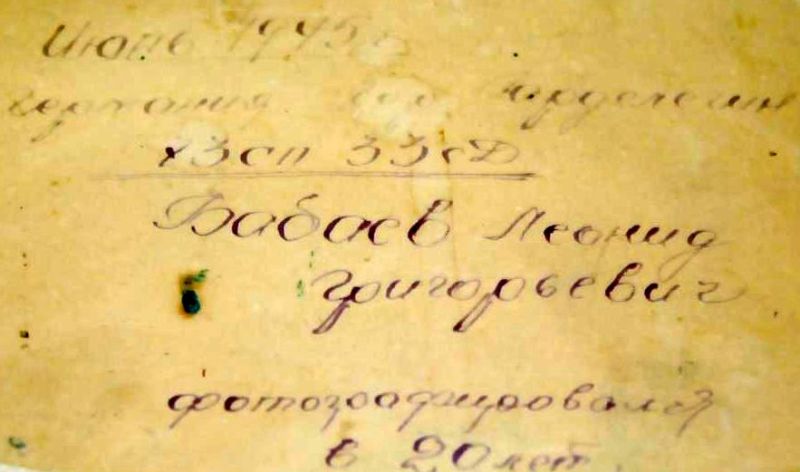 Июнь 1945 г
германия
73сп 33сД
Бабаев Леонид
Григорьевич
фотографировался
в 20 лет